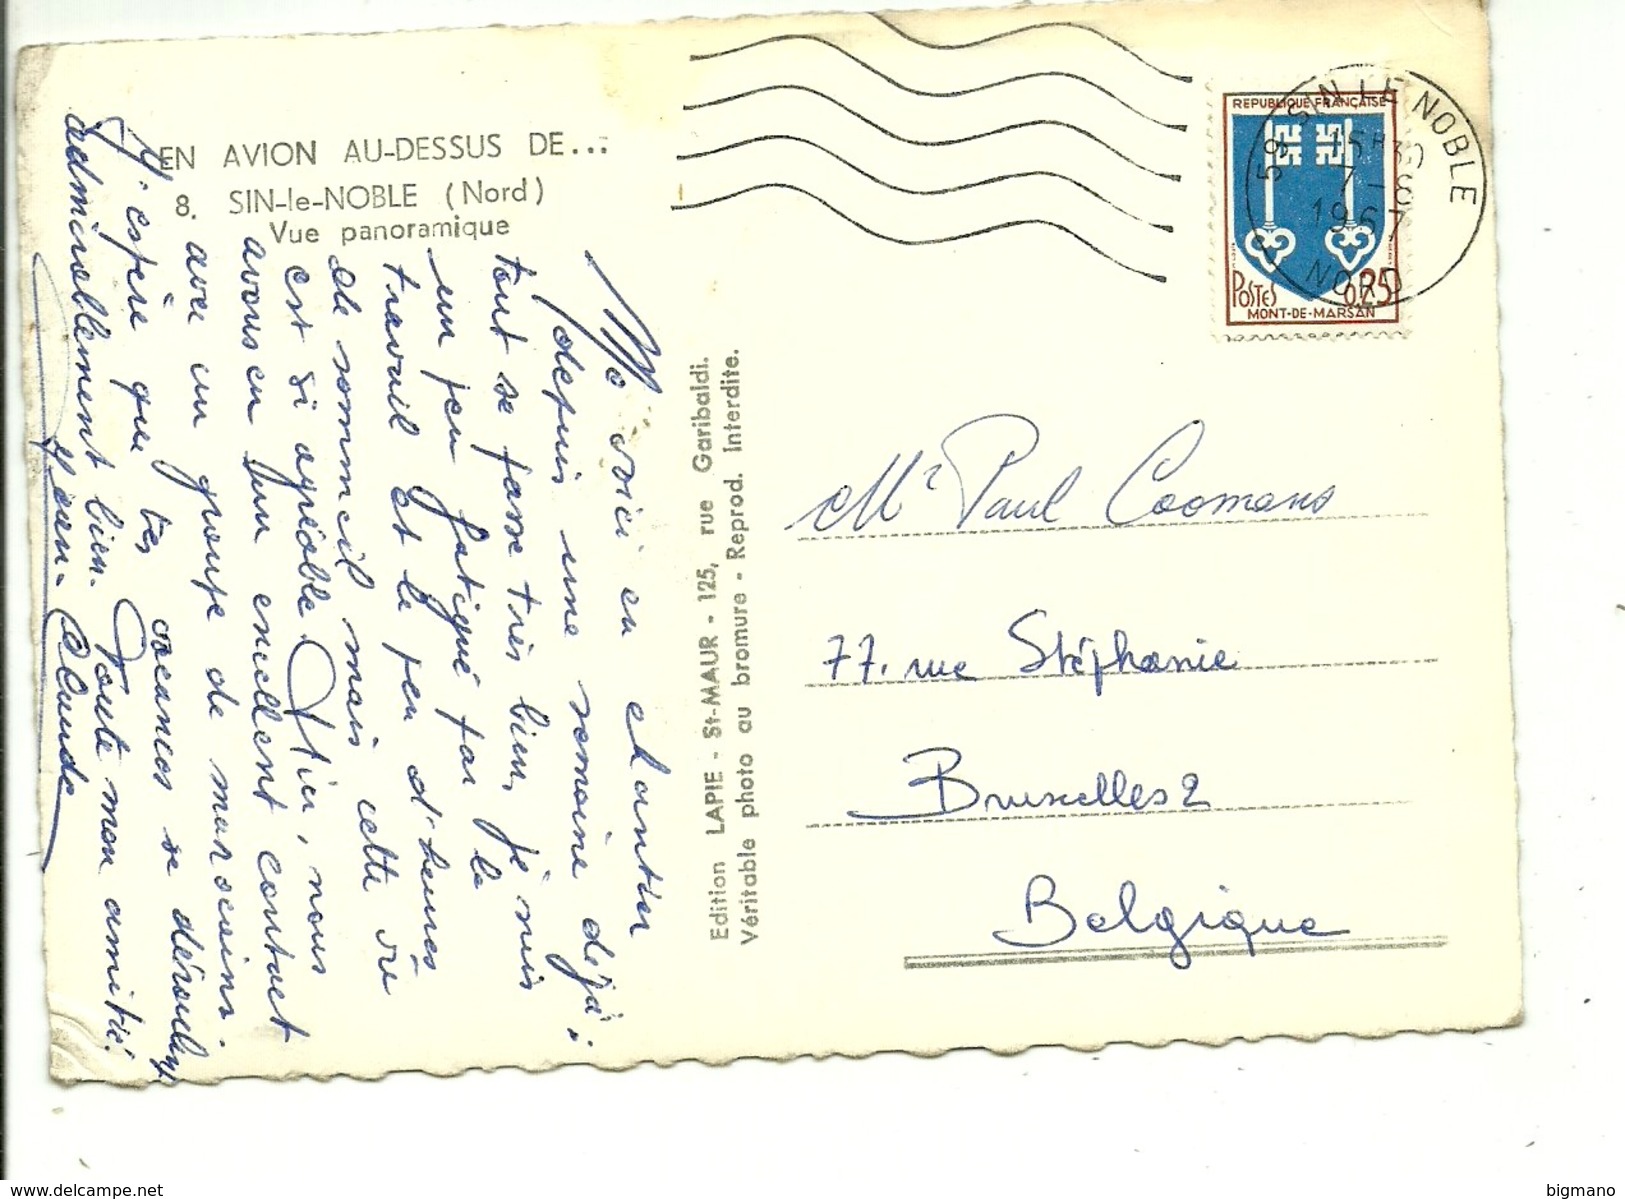 EN AVION AU-DESSUS DE...
8. SIN-le-NOBLE (Nord)
Vue panoramique
Me voici en chantier
depuis une semaine déjà;
tout se passe très bien, je suis
un peu fatigué par le
travail et le peu d'heures
de sommeil mais cette vie
est si agréable. Hier, nous
avons eu un excellent contact
avec un groupe de marocains.
J'espère que tes vacances se déroulent
admirablement bien. Toute mon amitié.
Jean-Claude
Edition LAPIE - St-MAUR - 125, rue Garibaldi.
Véritable photo au bromure - Reprod. Interdite.
REPUBLIQUE FRANÇAISE
POSTES 0,25
MONT-DE-MARSAN
59 SIN LE NOBLE
15H30
7-8
1967
NORD
Mr Paul Coomans
77. rue Stéphanie
Bruxelles 2
Belgique
www.delcampe.net
bigmano